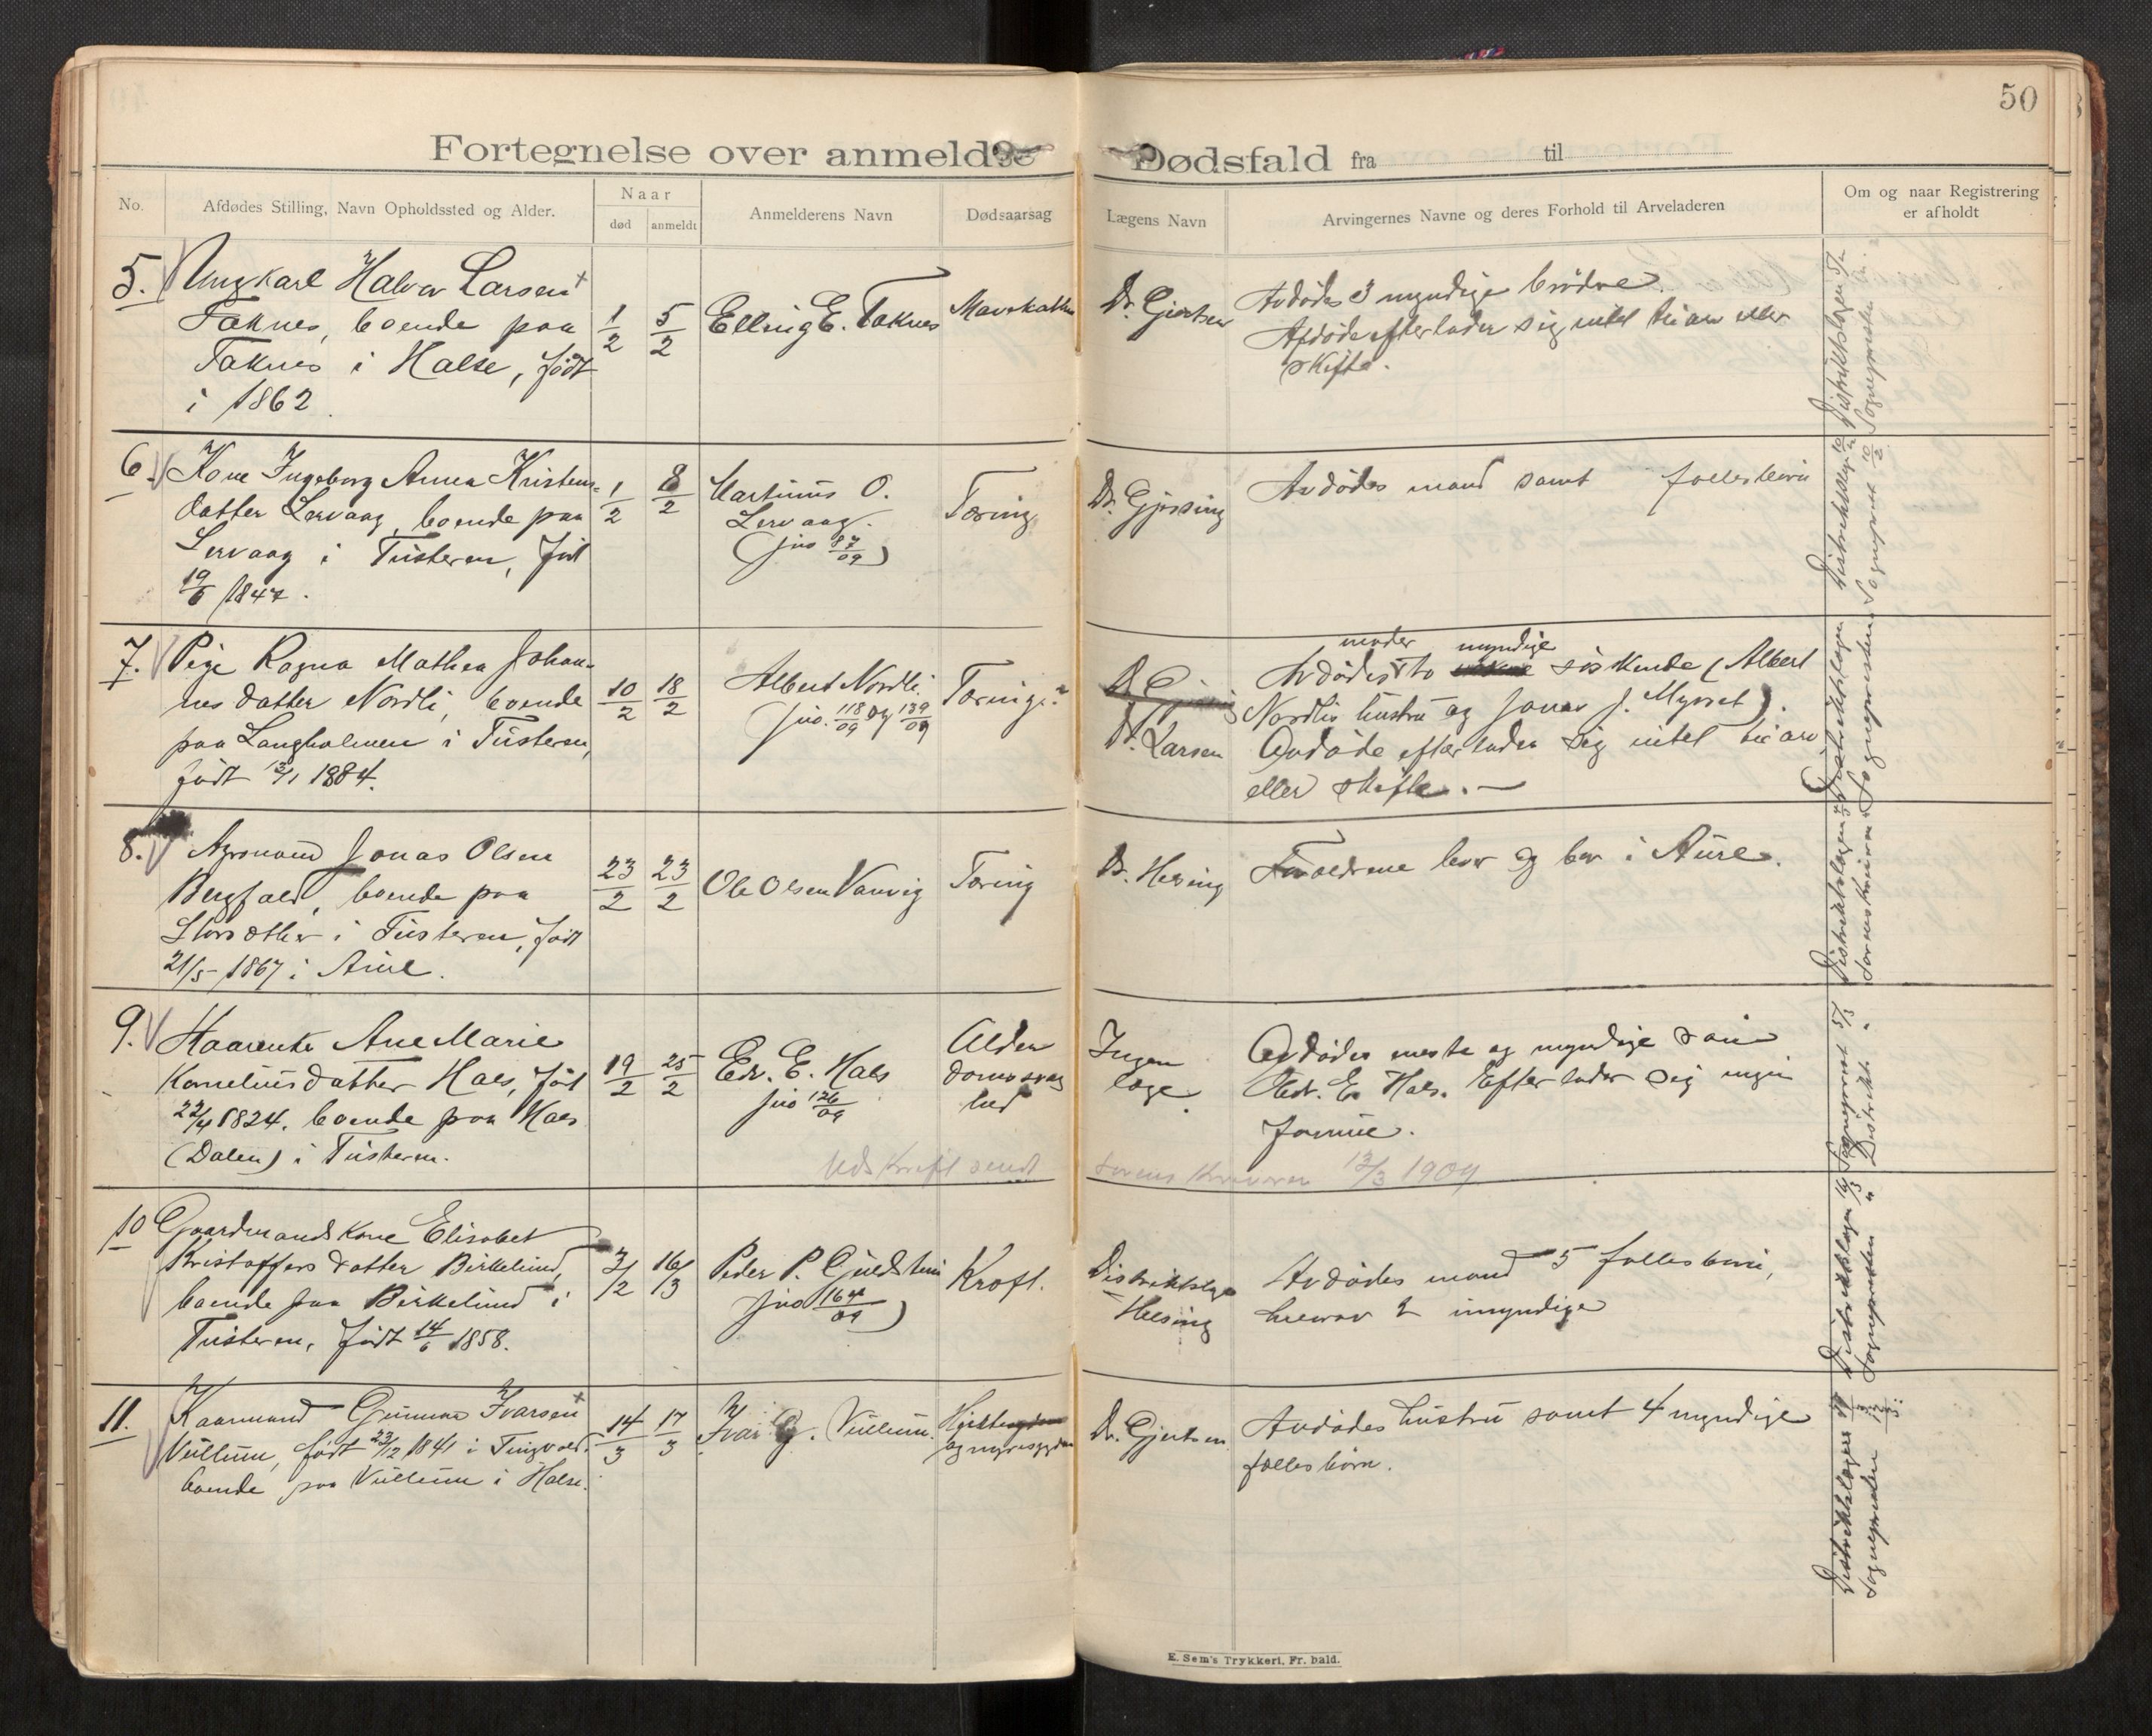 50
Fortegnelse over anmeldte Dødsfald fra til
No.
Afdødes Stilling, Navn Opholdssted og Alder.
Naar
død
anmeldt
Anmelderens Navn
Dødsaarsag
Lægens Navn
Arvingernes Navne og deres Forhold til Arveladeren
Om og naar Registrering
er afholdt
5.
Ungkarl Halvor Larsen
Taknes, boende paa
Taknes i Halse, født
i 1862
1/2
5/2
Elling E. Taknes
Dr. Gjertsen
Avdødes 3 myndige brødre.
Afdøde efterlader sig intet til arv eller
skifte.
Distriktslægen 5/2
Sognepresten
6.
Kone Ingeborg Anna Kristens-
datter Lervaag, boende paa
Lervaag i Tusteren, født
19/6 1847.
1/2
8/2
Martinus O.
Lervaag.
(jno 87/09)
Tæring
Dr. Gjøssing
Avdødes mand samt fællesbørn
Distriktslægen 10/2
Sognepresten 10/2
7.
Pige Ragna Mathea Johan-
nesdatter Nordli, boende
paa Langholmen i Tusteren,
født 13/1 1884.
10/2
18/2
Albert Nordli.
jno. 118/09 og 139/09
Tæring.
Dr. Larsen
moder myndige
Avdødes to søskende (Albert
Nordlis hustru og Jonas J. Myrset).
Avdøde efterlader sig intet til arv
eller skifte. —
Distriktslægen
Sognepresten
8.
Jonas Olsen
Bergfald, boende paa
Storsæther i Tusteren, født
21/5 1867 i Aure.
23/2
23/2
Ole Olsen Vanvig
Tæring
Dr. Helsing
Forældrene lever og bor i Aure.
Distriktslægen
Sorenskriveren
9.
Kaarenke Ane Marie
Korneliusdatter Hals, født
22/4 1824. boende paa Hals
(Dalen) i Tusteren.
19/2
25/2
Edv. E. Hals
jno 126/09
Alder
domssvag
hed
Ingen
læge.
Avdødes eneste og myndige søn
Edv. E. Hals. Efterlader sig ingen
formue.
Udskrift sendt Sorenskriveren 13/3 1909
Sogneprest 5/3
Distrikts "
10
Gaardmandskone Elisabet
Kristoffersdatter Birkelund,
boende paa Birkelund i
Tusteren, født 14/6 1858.
3/2
16/3
Peder P. Guldstein
(jno 164/09)
Kræft.
Distriktslæge
Helsing
Avdødes mand 5 fællesbørn,
hvorav 2 umyndige
Distriktslægen 16/3
Sognepresten "
11.
Kaarmand Gunnar Ivarsen
Vullum, født 23/12 1841 i Tingvold.
boende paa Vullum i Halse.
14/3
17/3
Ivar G. Vullum.
Hjertesygdom
og nyresygdom
Dr. Gjertsen
Avdødes hustru samt 4 myndige
fælles børn.
Distriktslægen 17/3
Sognepresten 17/3
E. Sem's Trykkeri, Fr. hald.